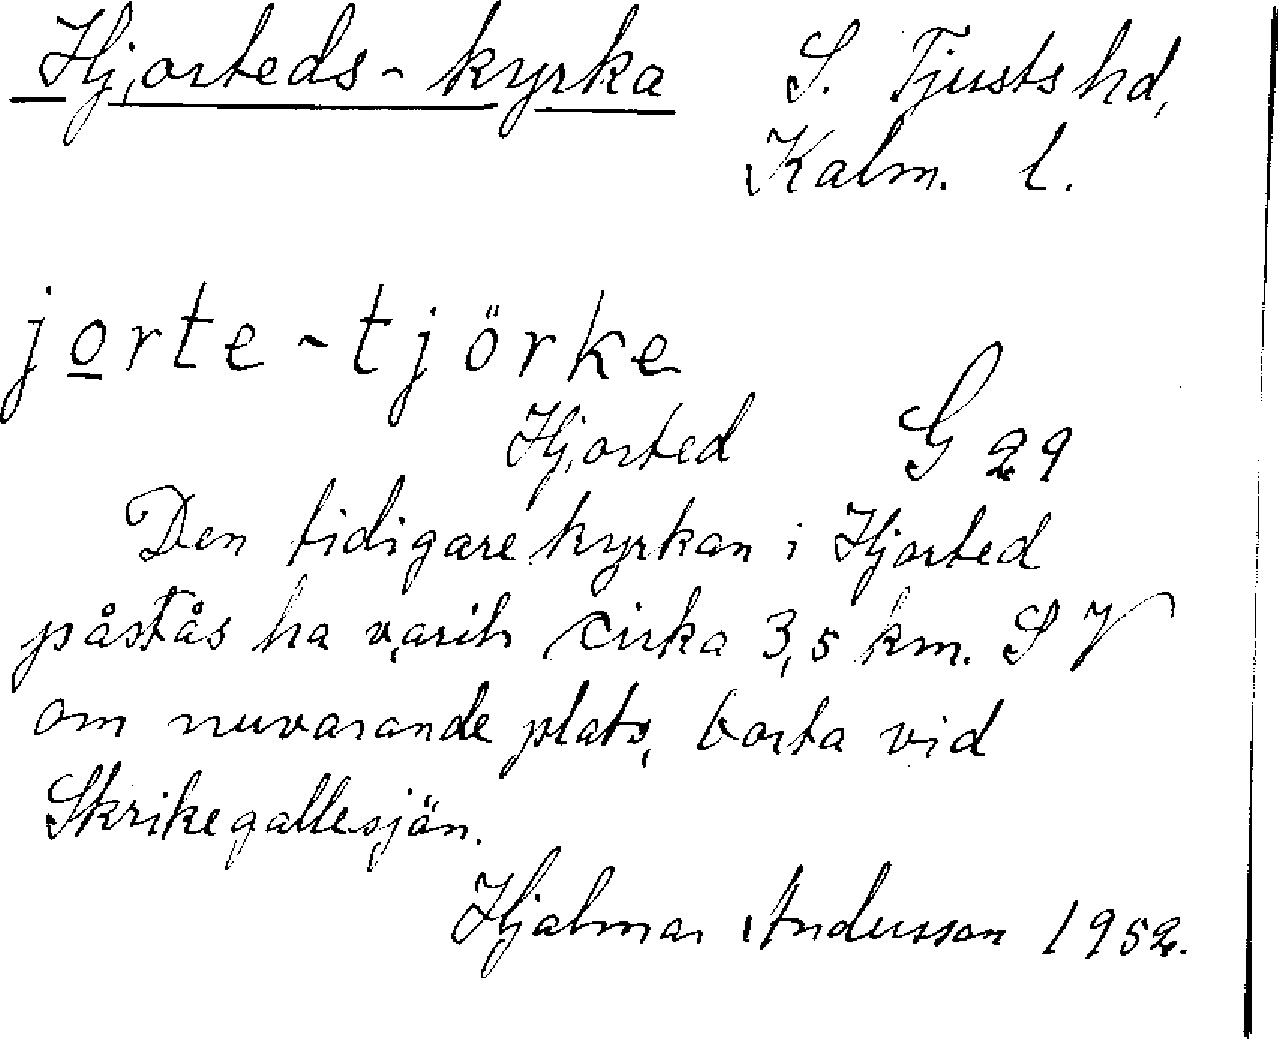 Hjorteds-kyrka S. Tjusts hd,
Kalm. l.
jorte-tjörke
Hjorted G 29
Den tidigare kyrkan i Hjorted
påstås ha varit cirka 3,5 km. SV
om nuvarande plats, borta vid
Skrikegallesjön.
Hjalmar Andersson 1952.